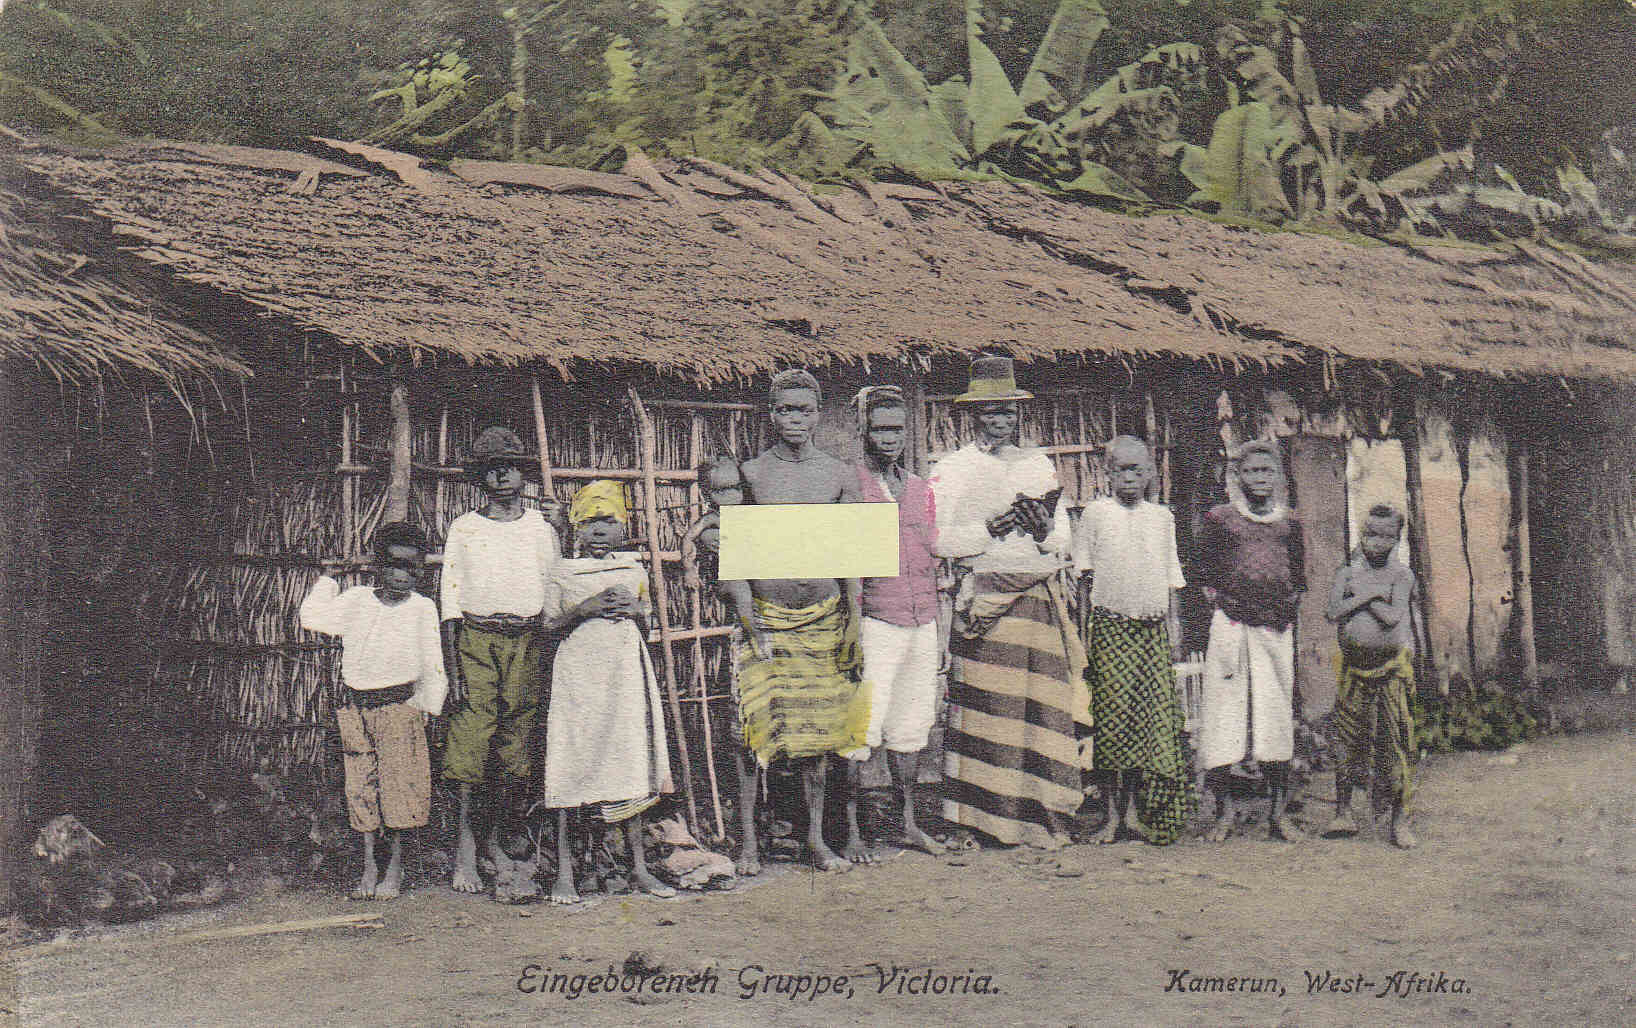 Eingeborenen Gruppe, Victoria.
Kamerun, West-Afrika.